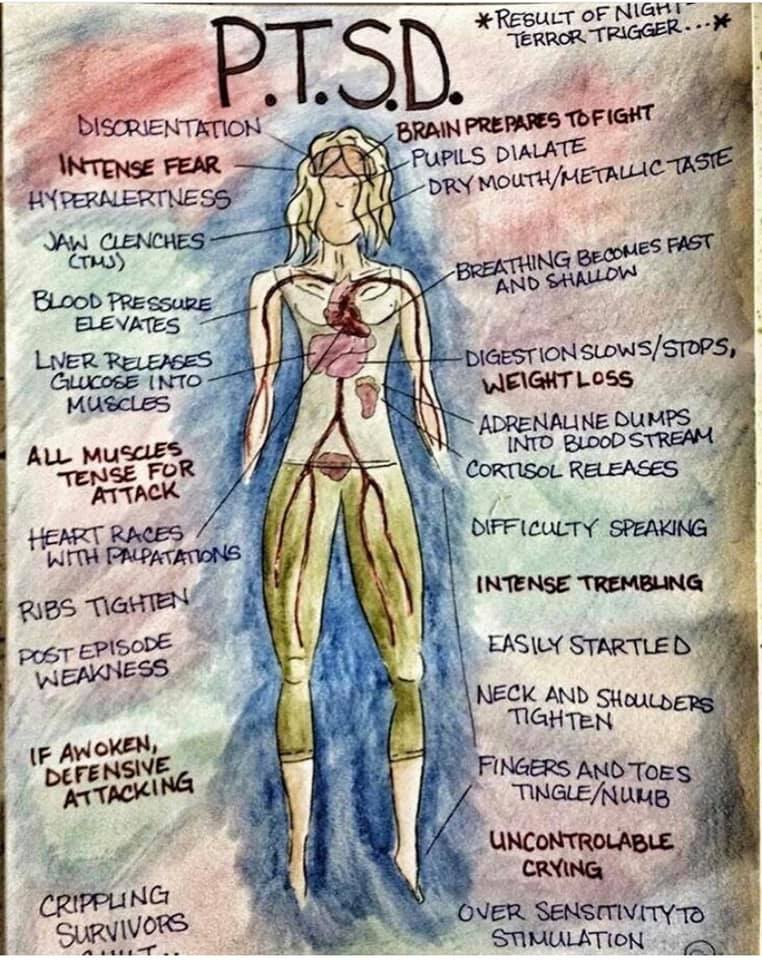 *RESULT OF NIGHT
TERROR TRIGGER...*
P.T.S.D.
DISORIENTATION
INTENSE FEAR
HYPERALERTNESS
JAW CLENCHES
(TMJ)
BLOOD PRESSURE
ELEVATES
LIVER RELEASES
GLUCOSE INTO
MUSCLES
ALL MUSCLES
TENSE FOR
ATTACK
HEART RACES
WITH PALPATATIONS
RIBS TIGHTEN
POST EPISODE
WEAKNESS
IF AWOKEN,
DEFENSIVE
ATTACKING
CRIPPLING
SURVIVORS
BRAIN PREPARES TO FIGHT
PUPILS DIALATE
DRY MOUTH/METALLIC TASTE
BREATHING BECOMES FAST
AND SHALLOW
DIGESTION SLOWS/STOPS,
WEIGHT LOSS
ADRENALINE DUMPS
INTO BLOODSTREAM
CORTISOL RELEASES
DIFFICULTY SPEAKING
INTENSE TREMBLING
EASILY STARTLED
NECK AND SHOULDERS
TIGHTEN
FINGERS AND TOES
TINGLE/NUMB
UNCONTROLABLE
CRYING
OVER SENSITIVITY TO
STIMULATION